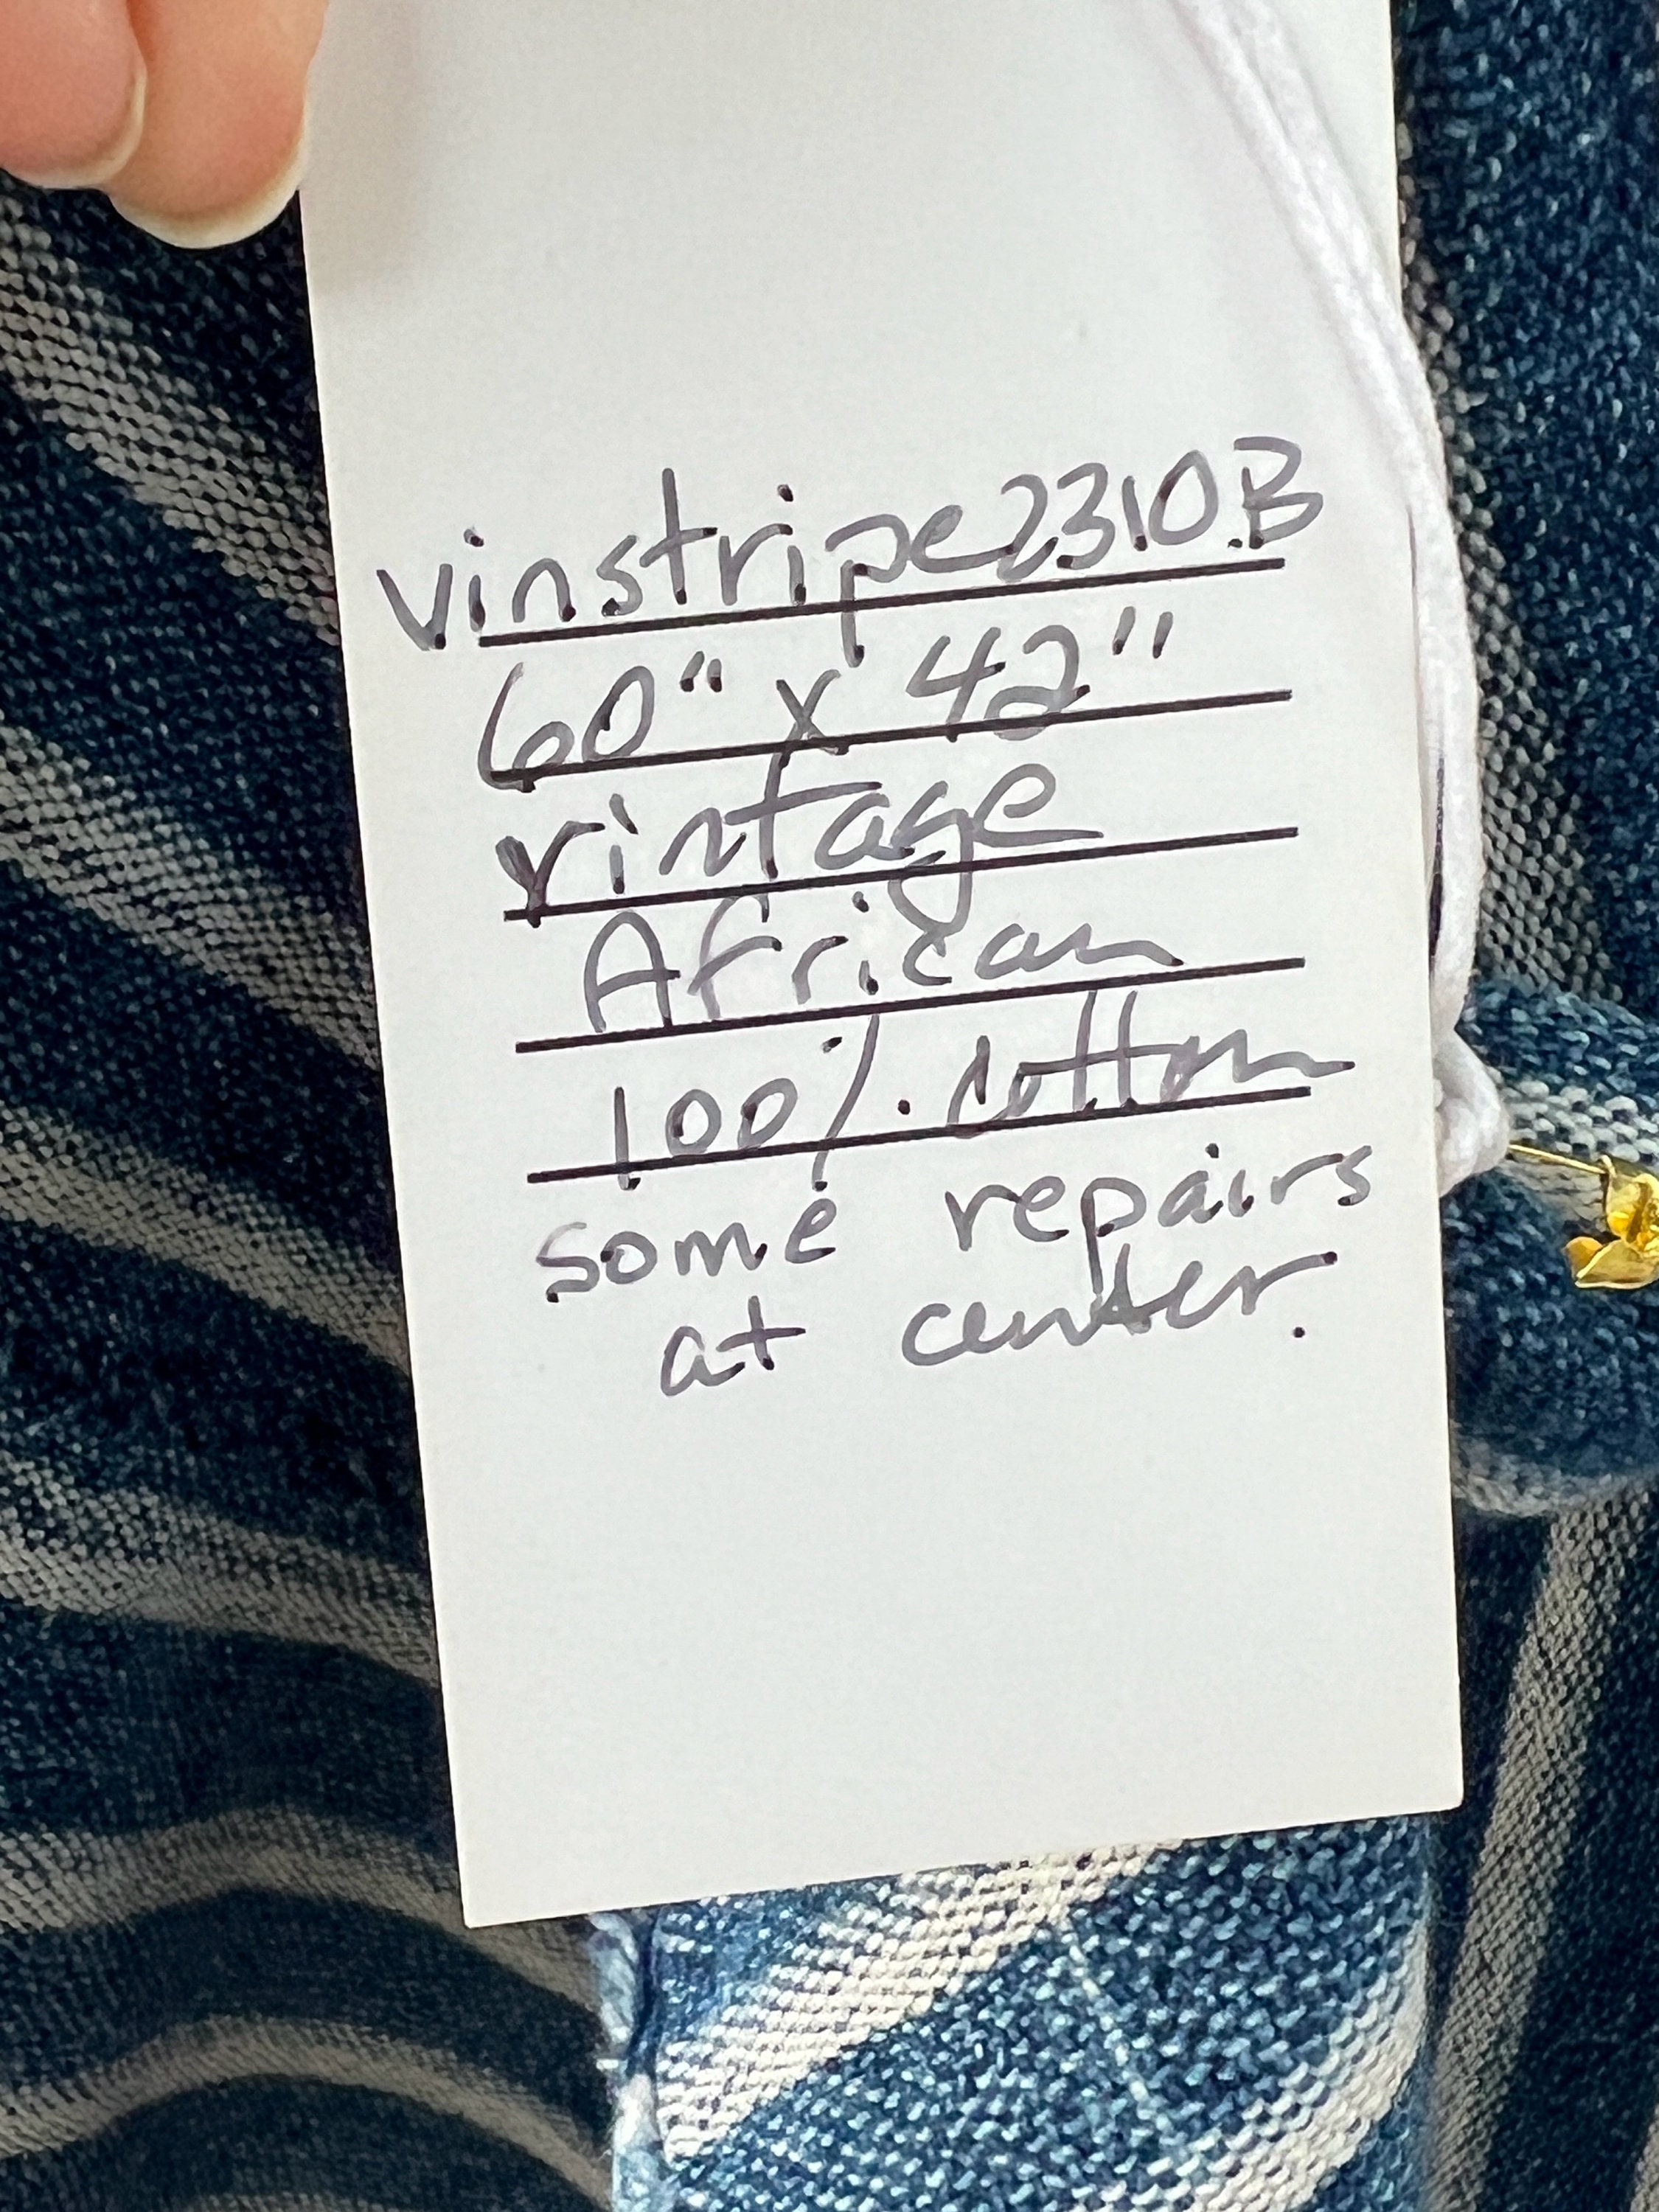 vinstripe2310B
60" x 42"
vintage
African
100% cotton
some repairs
at center.